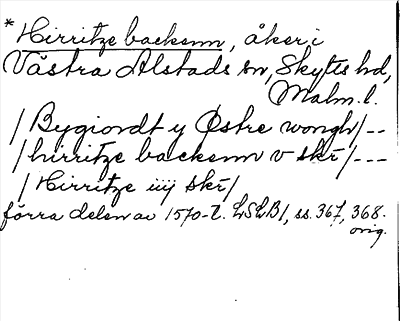 * Hirritze backenn, åker i
Västra Alstads sn, Skytts hd,
Malm. l.
/ Bygiordt y Østre wongh /--
/ hirritze backenn v skr̄ /---
/ Hirritze iiij skr̄ /
förra delen av 1570-t. LSLB1, ss. 367, 368.
orig.